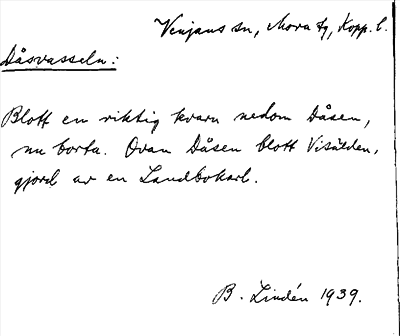 Venjans sn, Mora tg, Kopp. l.
Dåsvasseln:
Blott en riktig kvarn nedom Dåsen,
nu borta. Ovan Dåsen blott
gjord av en Landbokarl.
B. Lindén 1939.